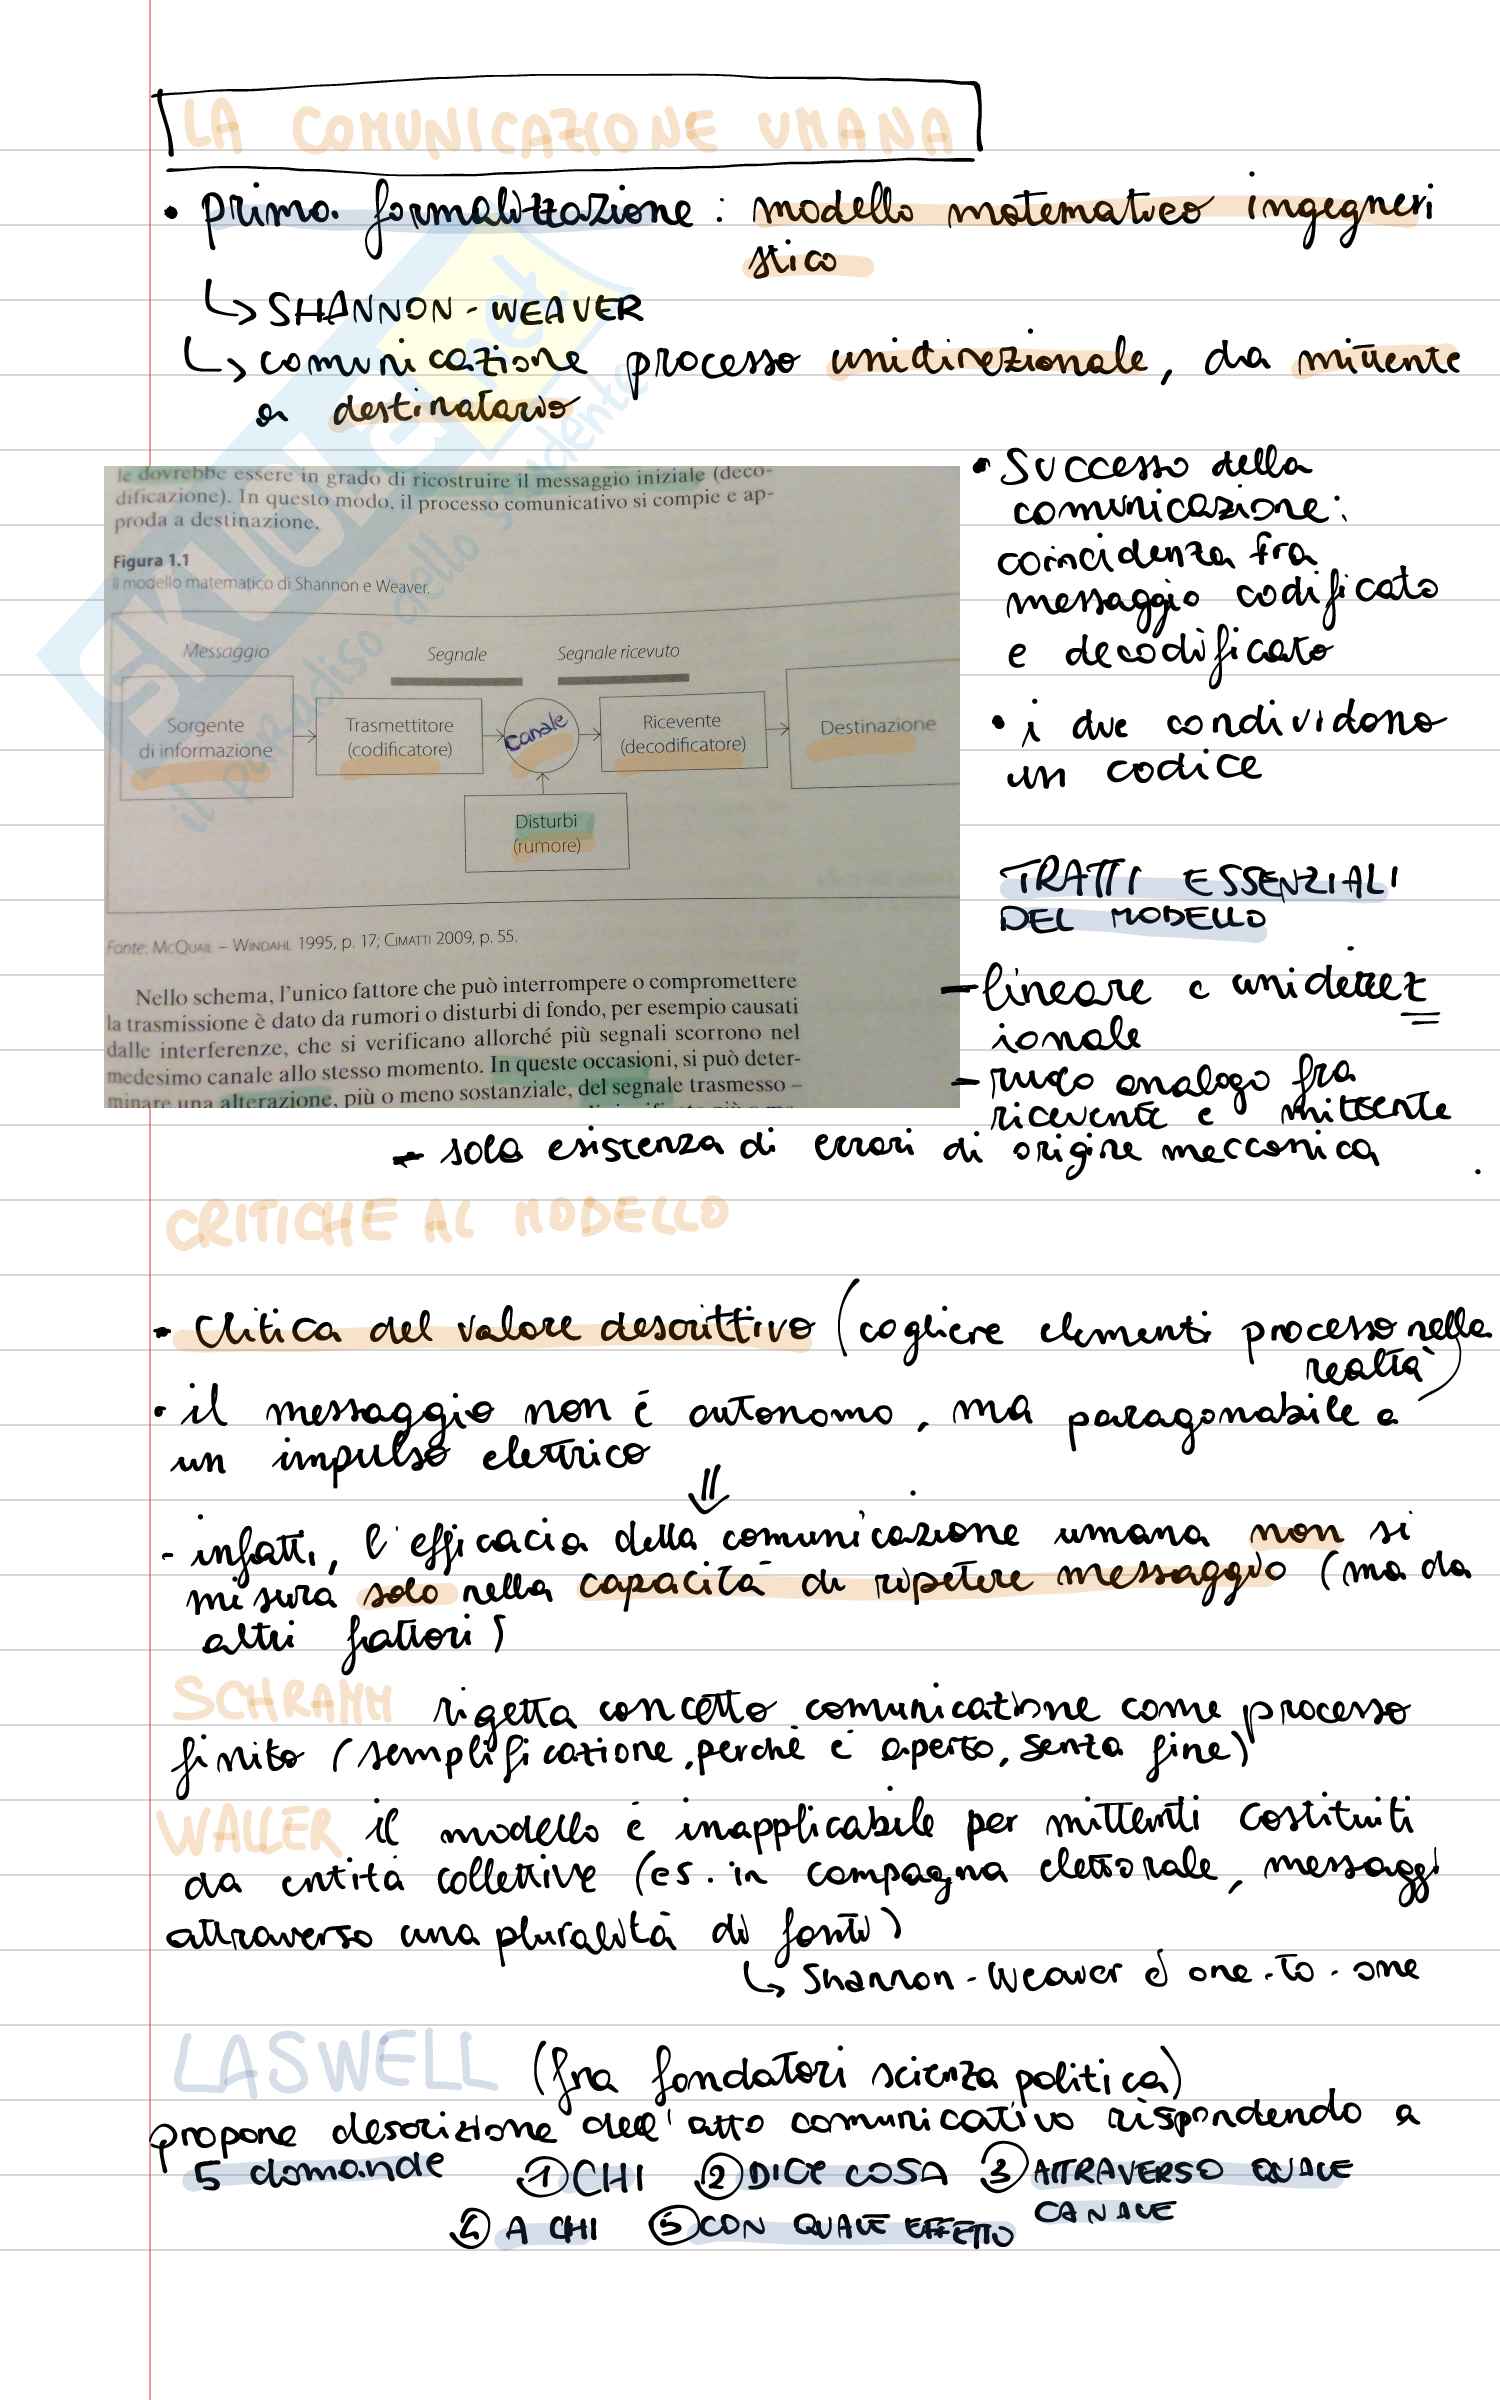 LA COMUNICAZIONE UMANA
• prima formalizzazione: modello matematico ingegneri
stico
↳ SHANNON - WEAVER
↳ comunicazione processo unidirezionale, da mittente
a destinatario
le dovrebbe essere in grado di ricostruire il messaggio iniziale (deco-
dificazione). In questo modo, il processo comunicativo si compie e ap-
proda a destinazione.
Figura 1.1
Il modello matematico di Shannon e Weaver.
Messaggio
Segnale
Segnale ricevuto
Sorgente
di informazione
Trasmettitore
(codificatore)
canale
Ricevente
(decodificatore)
Destinazione
Disturbi
(rumore)
Fonte: McQuail – Windahl 1995, p. 17; Cimatti 2009, p. 55.
Nello schema, l'unico fattore che può interrompere o compromettere
la trasmissione è dato da rumori o disturbi di fondo, per esempio causati
dalle interferenze, che si verificano allorché più segnali scorrono nel
medesimo canale allo stesso momento. In queste occasioni, si può deter-
minare una alterazione, più o meno sostanziale, del segnale trasmesso –
• Successo della
comunicazione:
coincidenza fra
messaggio codificato
e decodificato
• i due condividono
un codice
TRATTI ESSENZIALI
DEL MODELLO
- lineare e unidirez
ionale
- ruolo analogo fra
ricevente e mittente
- solo esistenza di errori di origine meccanica
CRITICHE AL MODELLO
• Critica del valore descrittivo (cogliere elementi processo nella
realtà)
• il messaggio non è autonomo, ma paragonabile a
un impulso elettrico
⇓
- infatti, l'efficacia della comunicazione umana non si
misura solo nella capacità di ripetere messaggio (ma da
altri fattori)
SCHRAMM rigetta concetto comunicazione come processo
finito (semplificazione, perché è aperto, senza fine)
WALLER il modello è inapplicabile per mittenti costituiti
da entità collettive (es. in campagna elettorale, messaggi
attraverso una pluralità di fonti)
↳ Shannon - Weaver è one-to-one
LASWELL (fra fondatori scienza politica)
propone descrizione dell'atto comunicativo rispondendo a
5 domande ① CHI ② DICE COSA ③ ATTRAVERSO QUALE
CANALE
④ A CHI ⑤ CON QUALE EFFETTO
SKUOLA.net
il paradiso dello studente